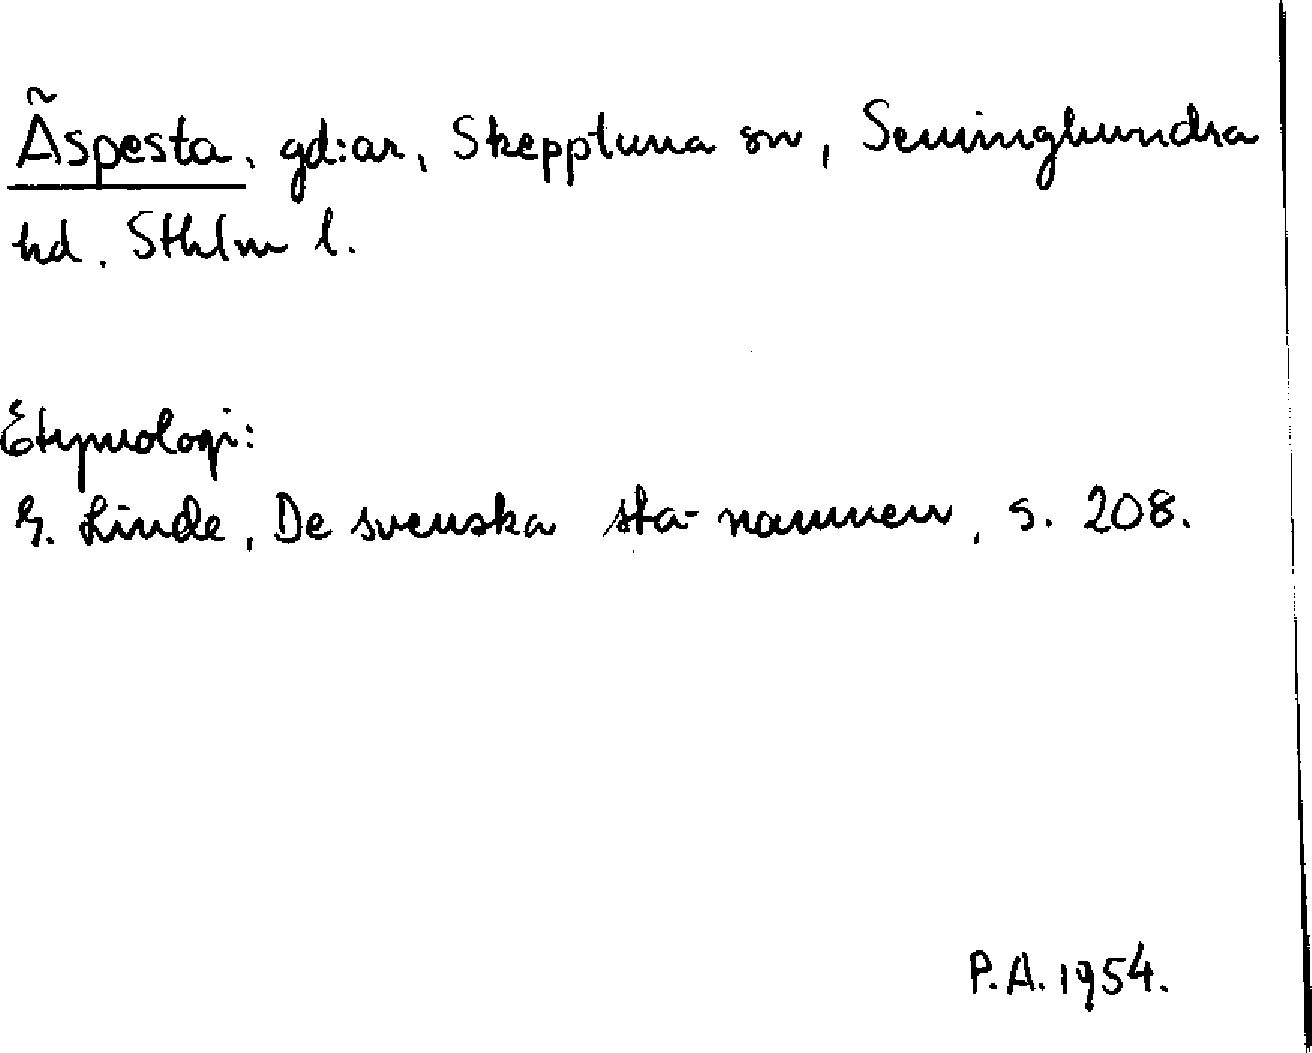 Äspesta, gd:ar, Skepptuna sn, Seminghundra
hd. Sthlm l.
Etymologi:
G. Linde, De svenska sta-namnen, s. 208.
P.A. 1954.